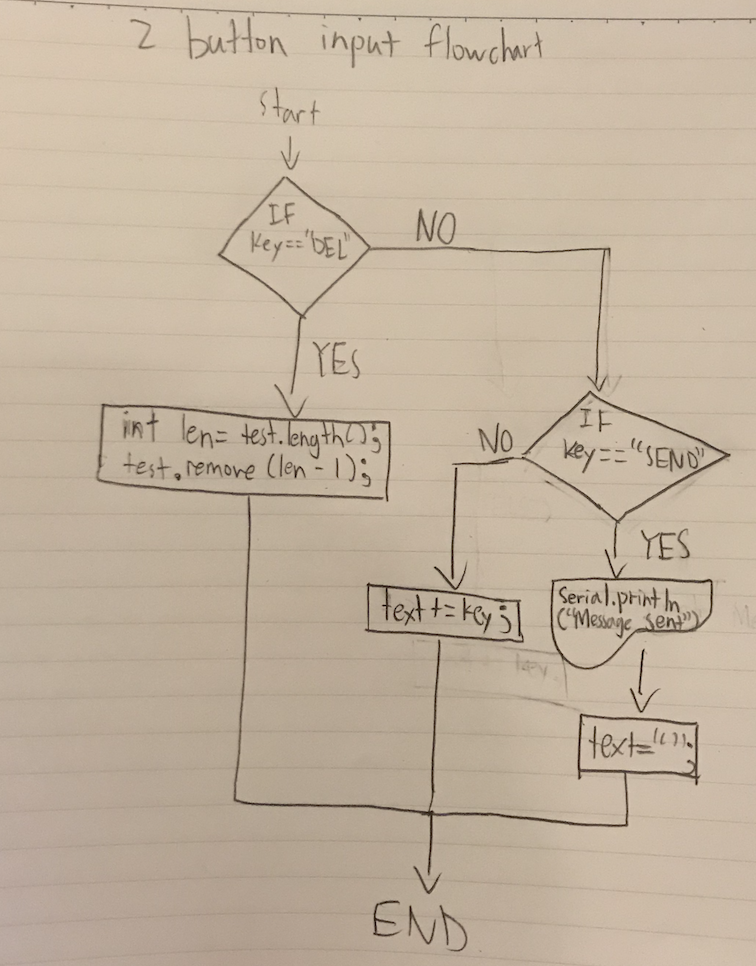 2 button input flowchart
start
IF
key=="DEL"
NO
YES
int len= test.length();
test.remove (len - 1);
IF
key=="SEND"
NO
YES
text += key;
Serial.println
("Message sent")
key.
text="";
END